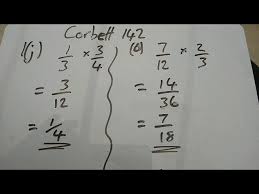 Corbett 142
1(j) 1/3 × 3/4
= 3/12
= 1/4
(o) 7/12 × 2/3
= 14/36
= 7/18